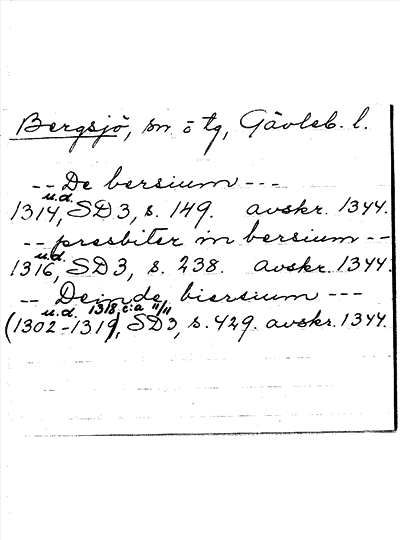 Bergsjö, sn ö tg, Gävleb. l.
-- De bersium ---
u.d.
1314, SD 3, s. 149. avskr. 1344.
-- presbiter in bersium --
u.d.
1316, SD 3, s. 238. avskr. 1344.
-- Deinde biersium ---
u.d. 1318 c:a 11/11
(1302-1319), SD 3, s. 429. avskr. 1344.